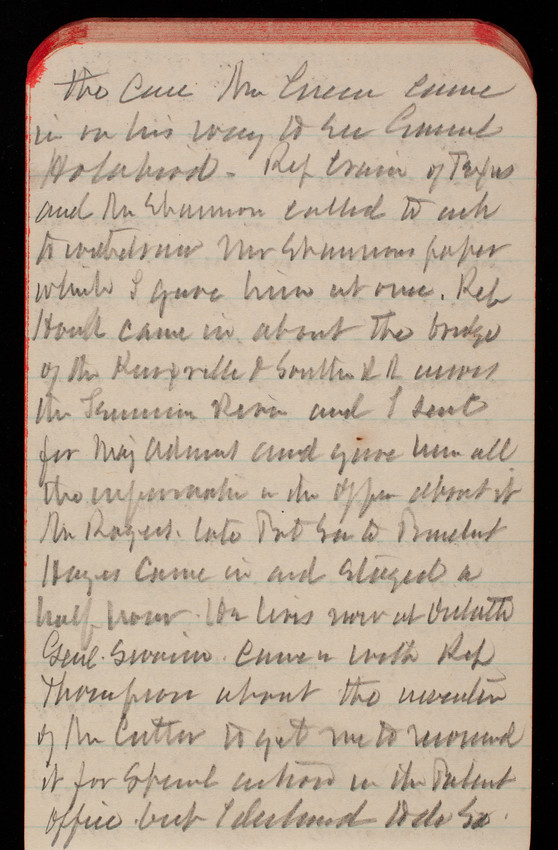 the case Mr Green came
in on his way to see General
Holabird. Rep Crain of Texas
and Mr Shannon called to ask
to withdraw Mr Shannons paper
which I gave him at once. Rep
Houk came in about the bridge
of the Knoxville & Southn R R across
the Tennessee River and I sent
for Maj Adams and gave him all
the information in the office about it
Mr Rogers. late Pvt Sec to President
Hayes came in and stayed a
half hour. He lives now at Duluth
Genl. Swaim. came in with Rep
Thompson about the invention
of Mr Cutter to get me to recommend
it for special action in the Patent
Office but I declined to do so.